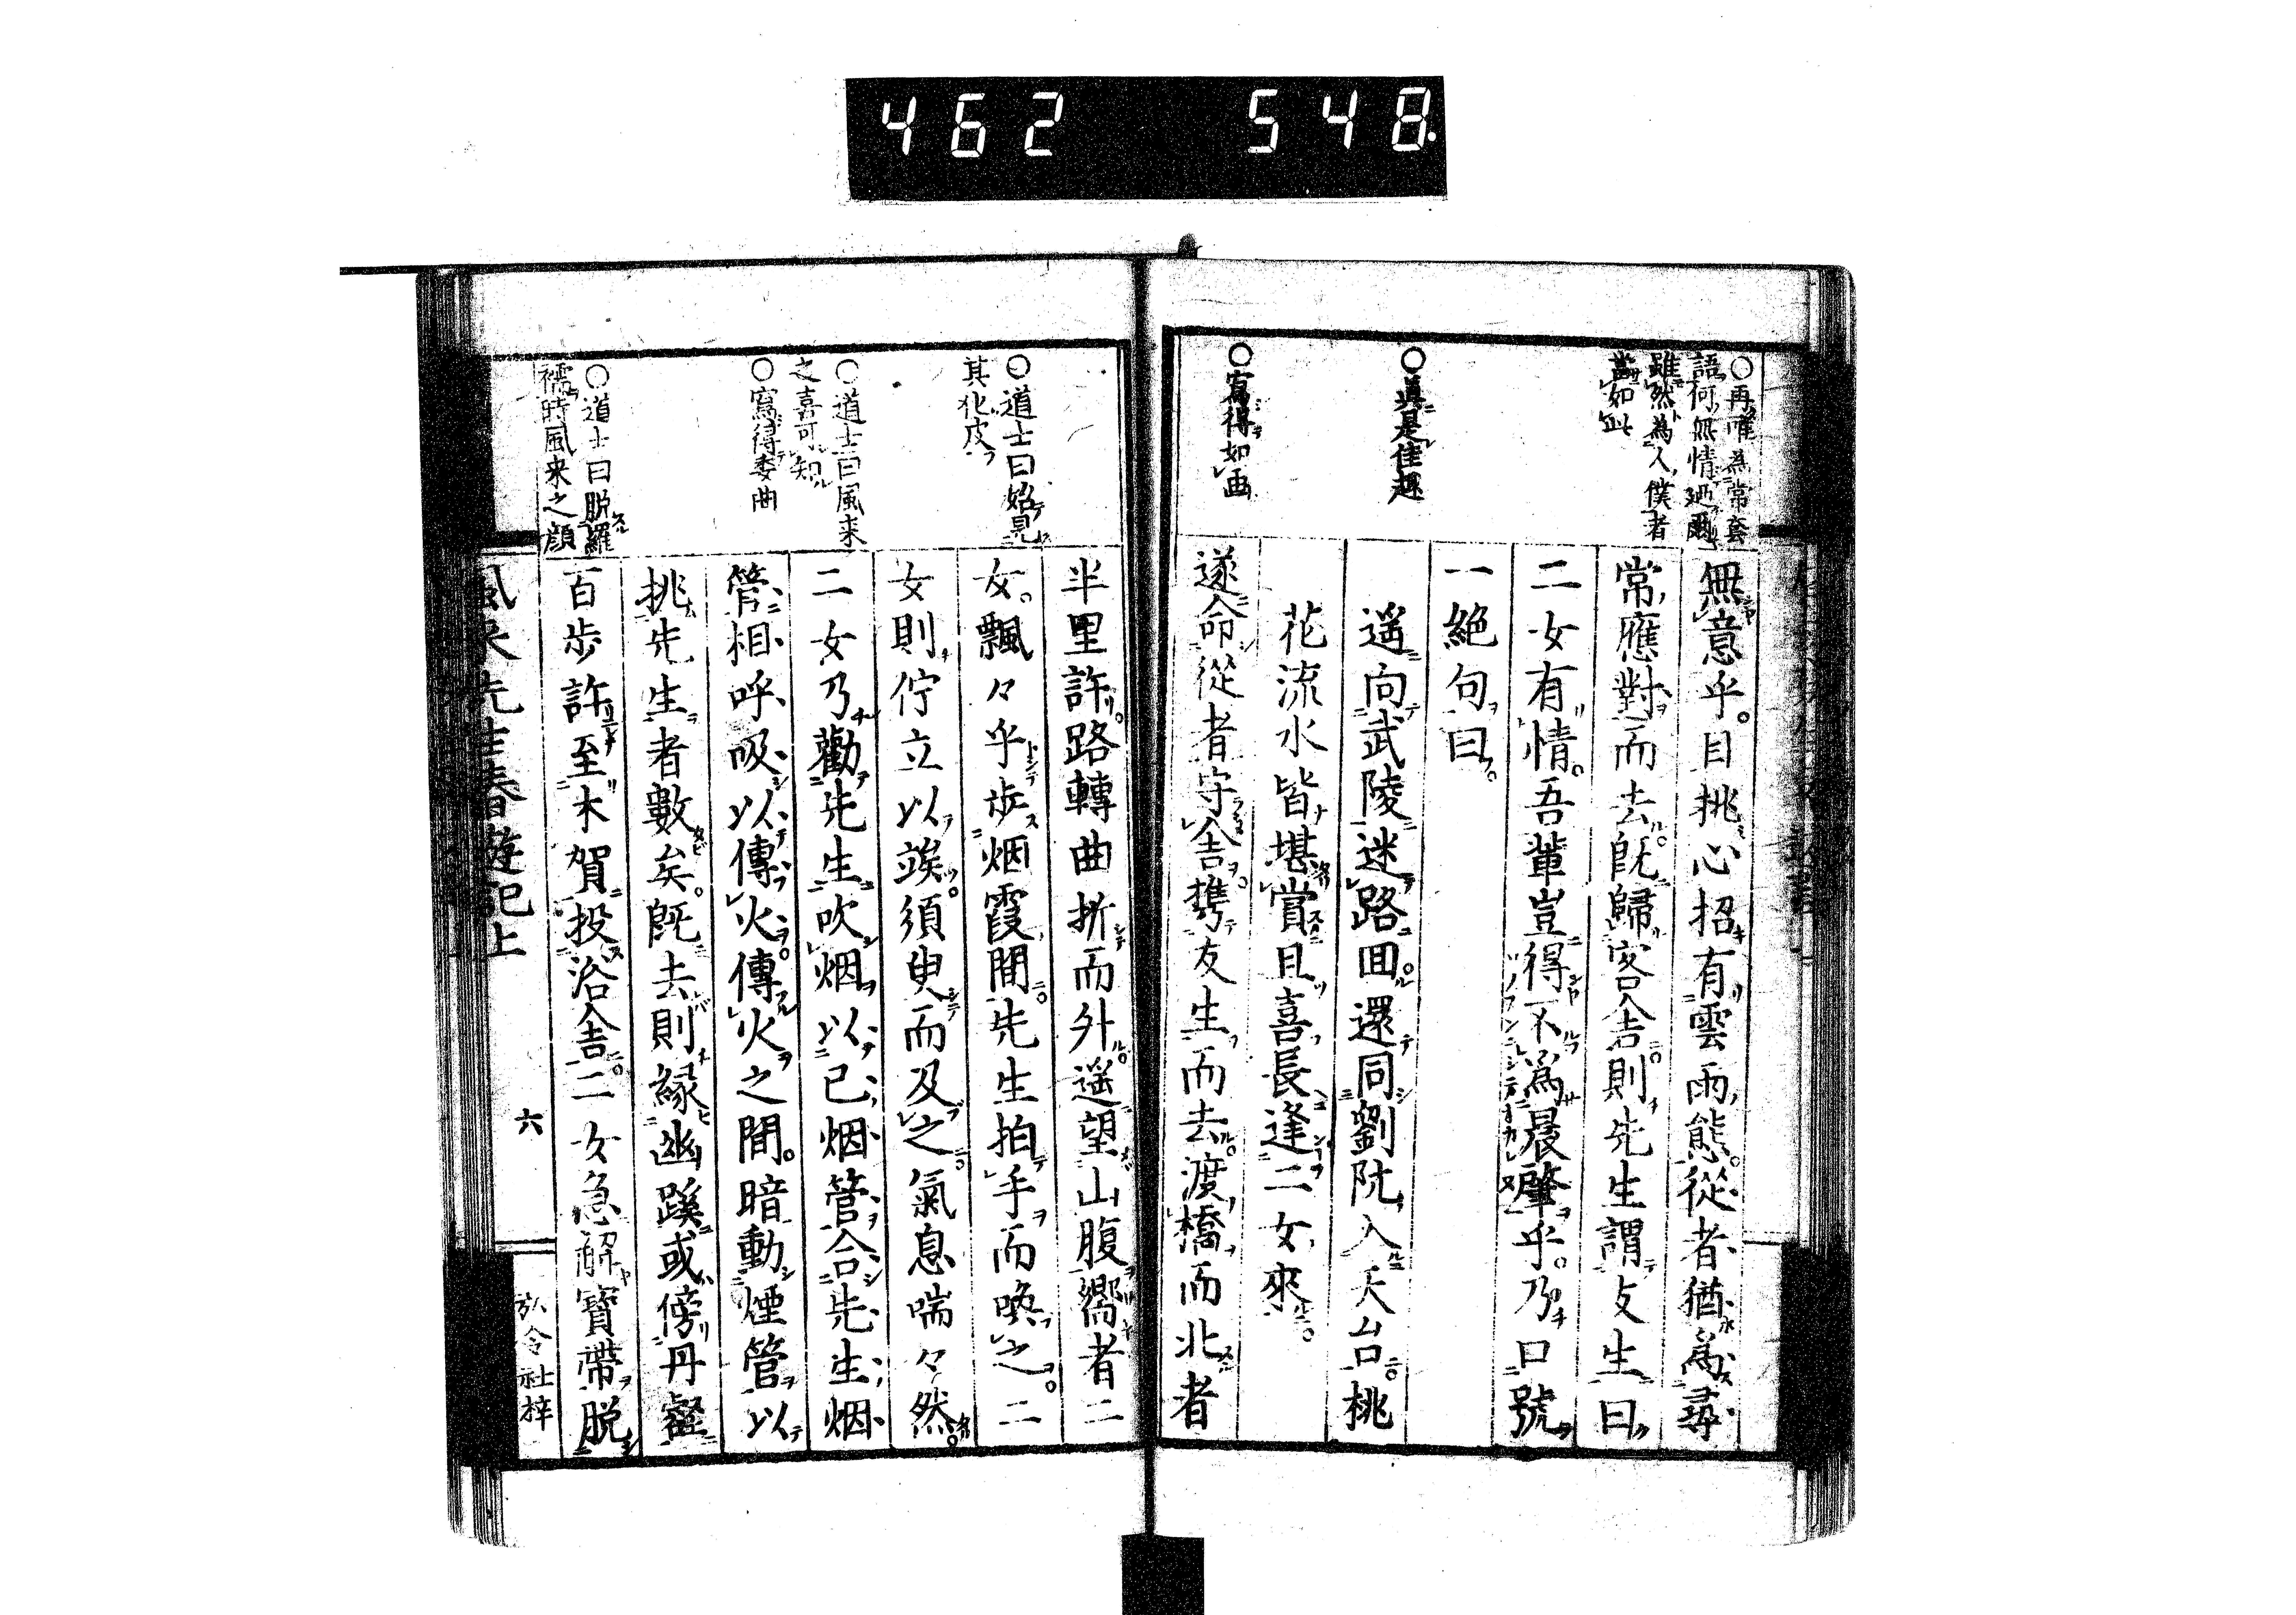 462 548
○再唯為常套
語何無情廼爾
雖然為人僕者
當如此
○真是佳趣
○寫得如画
無意乎目挑心招有雲雨熊從者猶為尋
常應對而去既歸客舎則先生謂友生曰
二女有情吾輩豈得不為晨肇乎乃口號
一絶句曰
遥向武陵迷路囬還同劉阮入天台桃
花流水皆堪賞且喜長逢二女來
遂命從者守舎携友生而去渡橋而北者
○道士曰始晃
其化皮
○道士曰風来
之喜可知
○寫得委曲
○道士曰脱羅
襦時風来之顔
半里許路轉曲折而外遥望山腹嚮者二
女飄々乎歩烟霞間先生拍手而喚之二
女則佇立以竢須臾而及之氣息喘々然
二女乃勸先生吹烟以已烟管合先生烟
管相呼吸以傳火傳火之間暗動煙管以
挑先生者數矣既去則縁幽蹊或傍丹壑
百歩許至木賀投浴舎二女急解寳帶脱
風来先生春遊記上
六
弘令社梓